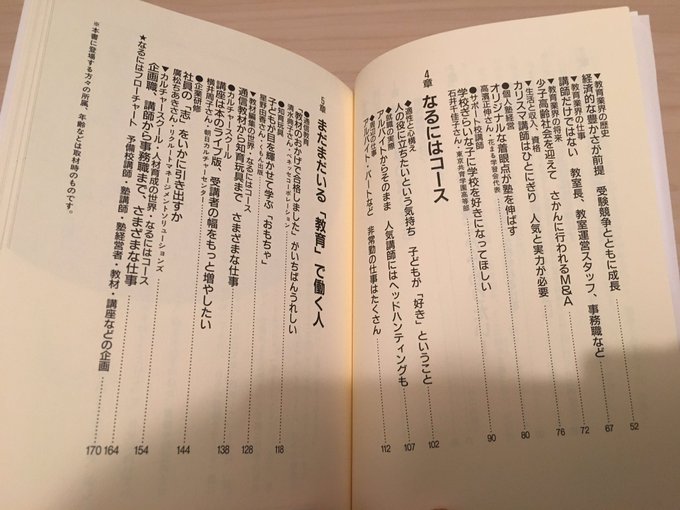 ▼教育業界の歴史
経済的な豊かさが前提 受験競争とともに成長 52
▼教育業界の仕事
講師だけではない 教室長、教室運営スタッフ、事務職など 67
▼教育業界の将来
少子高齢社会を迎えて さかんに行われるM&A 72
▼生活と収入、資格
カリスマ講師はひとにぎり 人気と実力が必要 76
●個人塾経営
オリジナルな着眼点が塾を伸ばす 80
高濱正伸さん・花まる学習会代表
●サポート校講師
学校ぎらいな子に学校を好きになってほしい 90
石井千佳子さん・東京共育学園高等部
4章 なるにはコース
▼適性と心構え
人の役に立ちたいという気持ち 子どもが「好き」ということ 102
▼就職の実際
アルバイトからそのまま 人気講師にはヘッドハンティングも 107
▼周辺の仕事
アルバイト・パートなど 非常勤の仕事はたくさん 112
5章 まだまだいる「教育」で働く人
●通信教育
「教材のおかげで合格しました」がいちばんうれしい 118
清水敷子さん・ベネッセコーポレーション
●知育玩具
子どもが目を輝かせて学ぶ「おもちゃ」 128
星野由香さん・くもん出版
▼教材編集の世界・なるにはコース
通信教材から知育玩具まで さまざまな仕事 138
●カルチャースクール
講座は本のライブ版 受講者の幅をもっと増やしたい
横井周子さん・朝日カルチャーセンター
●企業研修
社員の「志」をいかに引き出すか 144
廣松ちあきさん・リクルートマネージメントソリューションズ
▼カルチャースクール・人材育成の世界・なるにはコース
企画職、講師から事務職まで、さまざまな仕事 154
★なるにはフローチャート 予備校講師・塾講師・塾経営者・教材・講座などの企画 164
170
※本書に登場する方々の所属、年齢などは取材時のものです。